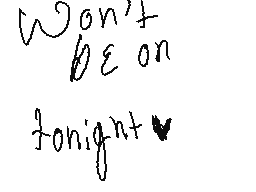 Won't
be on
tonight ♥